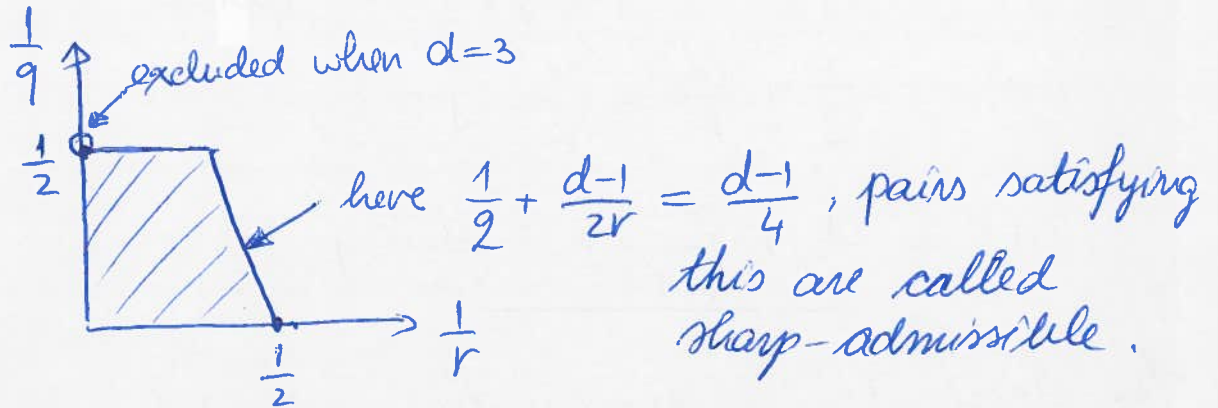 1/q
excluded when d=3
1/2
here 1/q + (d-1)/2r = (d-1)/4 , pairs satisfying
this are called
sharp-admissible.
1/r
1/2